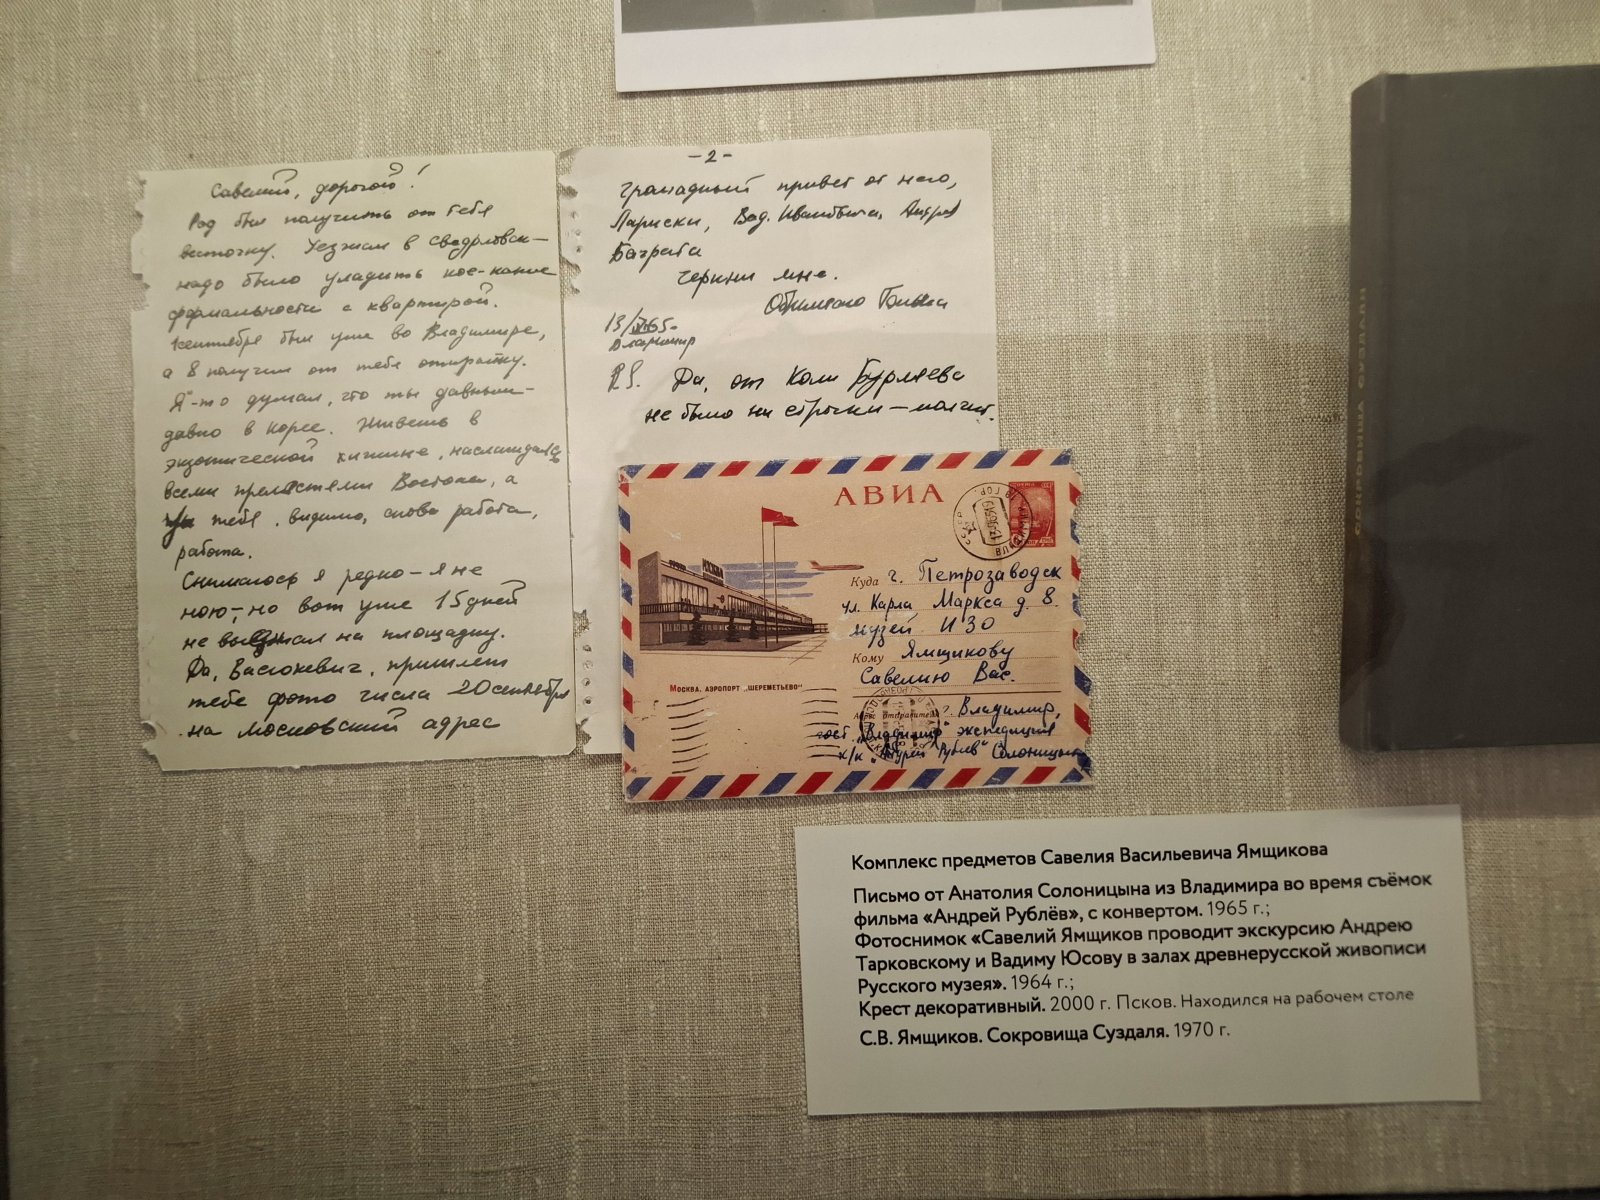 Савелий, дорогой!
Рад был получить от тебя
весточку. Уезжал в Свердловск –
надо было уладить кое-какие
формальности с квартирой.
1 сентября был уже во Владимире,
а 8 получил от тебя открытку.
Я-то думал, что ты давным-
давно в Корее. Живешь в
экзотической хижине, наслаждаясь
всеми прелестями Востока, а
у тебя, видимо, снова работа,
работа.
Снимаюсь я редко – я не
ною, – но вот уже 15 дней
не выезжал на площадку.
Да, Васюкевич, пришлет
тебе фото числа 20 сентября
на московский адрес
– 2 –
громадный привет от него,
Лариски, Вад. Ивановича, Андрея
Баграта
Черкни мне.
Обнимаю Толька
13/IX 65
Владимир
P.S. Да, от Коли Бурляева
не было ни строчки – молчит.
АВИА
МОСКВА
Куда г. Петрозаводск
ул. Карла Маркса д. 8.
музей ИЗО
Кому Ямщикову
Савелию Вас.
МОСКВА. АЭРОПОРТ „ШЕРЕМЕТЬЕВО“
Адрес отправителя: г. Владимир,
гост. „Владимир“ экспедиция
к/к „Андрей Рублев“ Солоницын
СОКРОВИЩА СУЗДАЛЯ
Комплекс предметов Савелия Васильевича Ямщикова
Письмо от Анатолия Солоницына из Владимира во время съёмок
фильма «Андрей Рублёв», с конвертом. 1965 г.;
Фотоснимок «Савелий Ямщиков проводит экскурсию Андрею
Тарковскому и Вадиму Юсову в залах древнерусской живописи
Русского музея». 1964 г.;
Крест декоративный. 2000 г. Псков. Находился на рабочем столе
С.В. Ямщиков. Сокровища Суздаля. 1970 г.